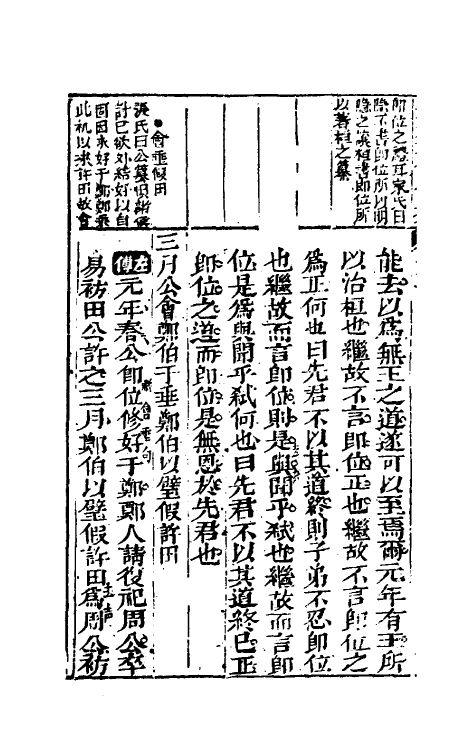 即位之禮耳家氏曰
隱不書即位所以明
隱之讓桓書即位所
以著桓之簒
會垂假田
張氏曰公簒惧諸侯
討已欲外結好以自
固因求好于鄭鄭乘
此机以求許田故會
能去以爲無王之道遂可以至焉爾元年有王所
以治桓也繼故不言即位正也繼故不言即位之
爲正何也曰先君不以其道終則子弟不忍即位
也繼故而言即位則是與聞乎弑也繼故而言即
位是爲與聞乎弑何也曰先君不以其道終已正
即位之道而即位是無恩於先君也
三月公會鄭伯于垂鄭伯以璧假許田
左傳元年春公即位修好于鄭鄭人請復祀周公卒
易祊田公許之三月鄭伯以璧假許田爲周公祊